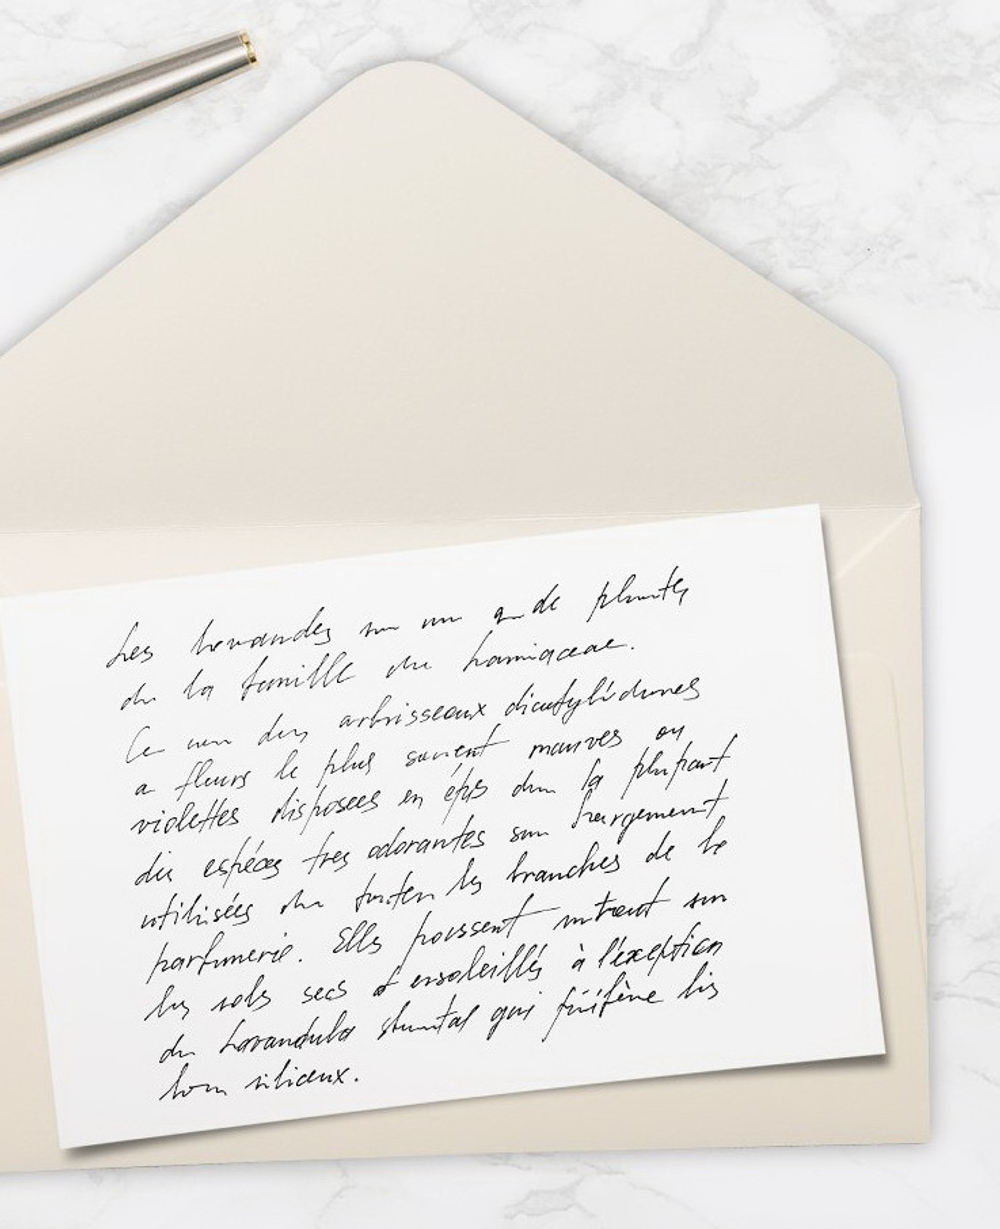 Les lavandes de plantes
de la famille des Lamiaceae.
Ce sont des arbrisseaux dicotylédones
a fleurs le plus souvent mauves ou
violettes disposees en épis dans la plupart
des espéces tres odorantes sont largement
utilisées dans toutes les branches de la
parfumerie. Elles poussent surtout sur
les sols secs et ensoleillés à l'exception
du Lavandula qui préfère les
siliceux.